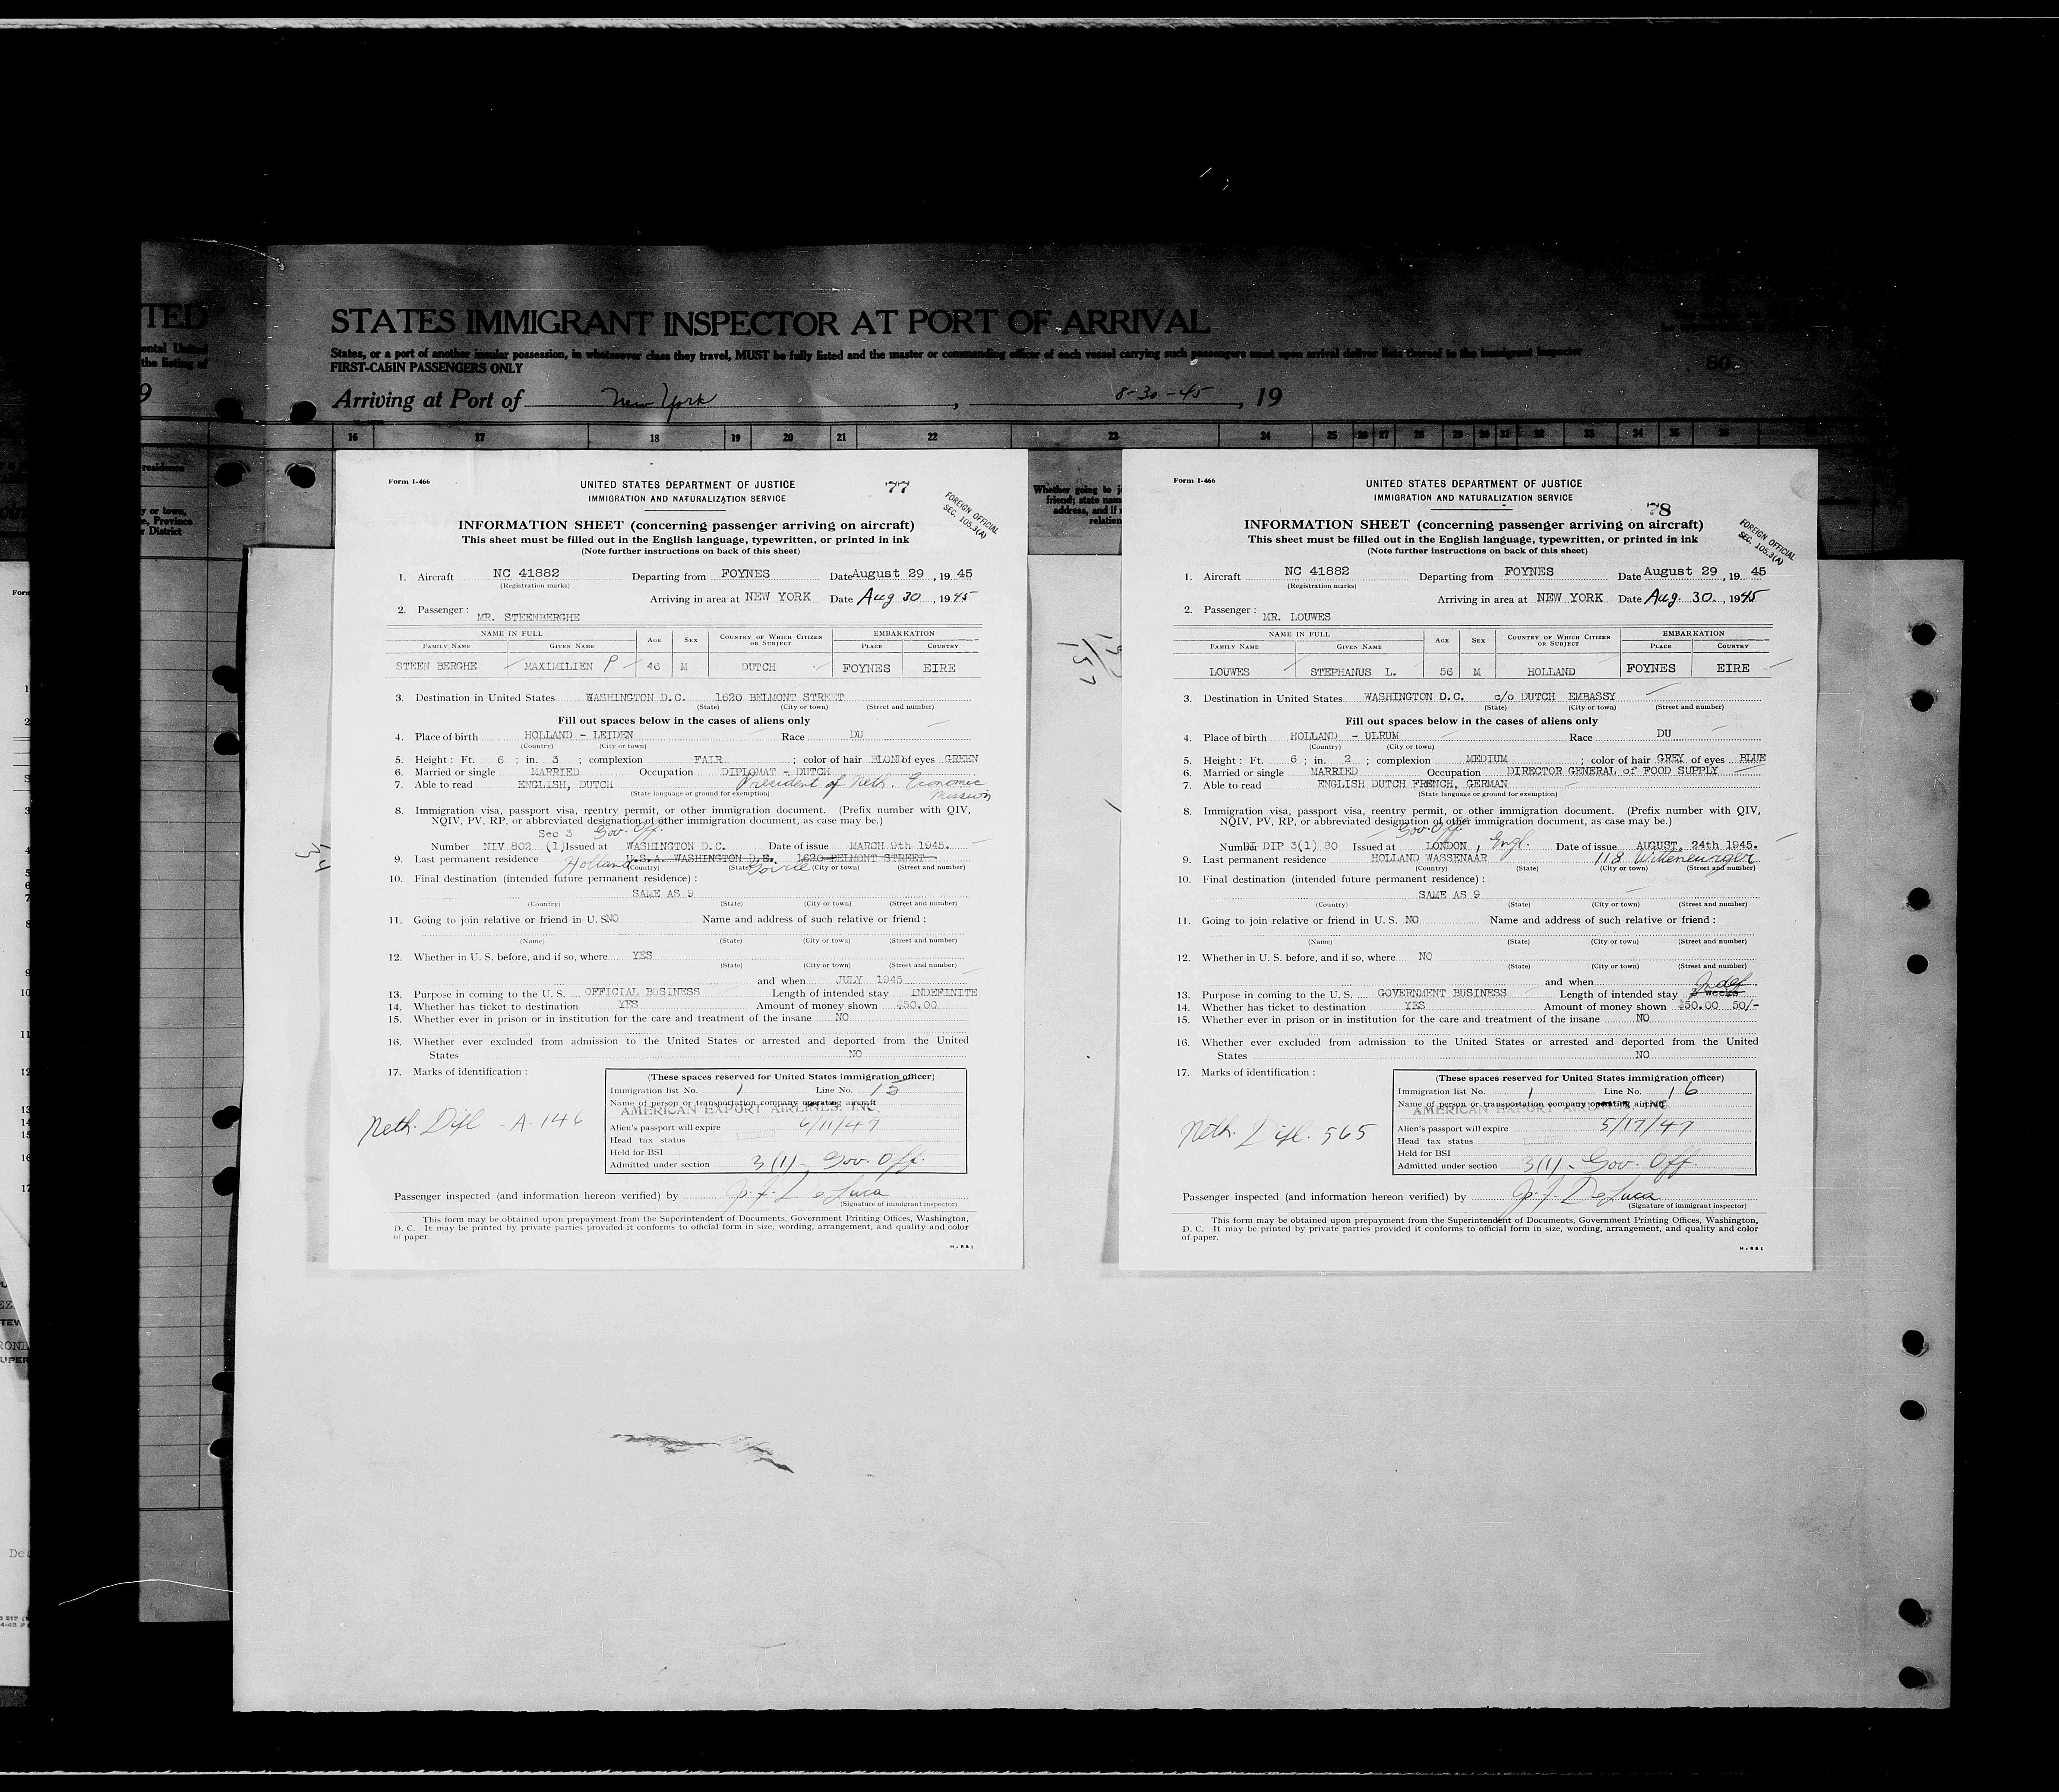 TED
STATES IMMIGRANT INSPECTOR AT PORT OF ARRIVAL
ental United
the listing of
States, or a port of another insular possession, in whatsoever class they travel, MUST be fully listed and the master or commanding officer of each vessel carrying such passengers must upon arrival deliver lists thereof to the immigrant inspector
FIRST-CABIN PASSENGERS ONLY
80
9
Arriving at Port of New York, 8-30-45, 19
16 17 18 19 20 21 22 23 24 25 26 27 28 29 30 31 32 33 34 35 36
residence
y or town,
e, Province
r District
Whether going to j
friend; state nam
address, and if
relation
Form I-466
UNITED STATES DEPARTMENT OF JUSTICE
77
IMMIGRATION AND NATURALIZATION SERVICE
FOREIGN OFFICIAL
SEC. 105.3(A)
INFORMATION SHEET (concerning passenger arriving on aircraft)
This sheet must be filled out in the English language, typewritten, or printed in ink
(Note further instructions on back of this sheet)
1. Aircraft NC 41882 Departing from FOYNES Date August 29, 19 45
(Registration marks)
Arriving in area at NEW YORK Date Aug 30, 1945
2. Passenger :
MR. STEENBERGHE
NAME IN FULL AGE SEX COUNTRY OF WHICH CITIZEN OR SUBJECT EMBARKATION
FAMILY NAME GIVEN NAME PLACE COUNTRY
STEEN BERGHE MAXIMILIEN P 46 M DUTCH FOYNES EIRE
3. Destination in United States WASHINGTON D.C. 1620 BELMONT STREET
(State) (City or town) (Street and number)
Fill out spaces below in the cases of aliens only
4. Place of birth HOLLAND - LEIDEN Race DU
(Country) (City or town)
5. Height : Ft. 6 ; in. 3 ; complexion FAIR ; color of hair BLOND of eyes GREEN
6. Married or single MARRIED Occupation DIPLOMAT - DUTCH
7. Able to read ENGLISH, DUTCH President of Neth. Economic Mission
(State language or ground for exemption)
8. Immigration visa, passport visa, reentry permit, or other immigration document. (Prefix number with QIV,
NQIV, PV, RP, or abbreviated designation of other immigration document, as case may be.)
Sec 3 Gov. Off.
Number NIV 802 (1) Issued at WASHINGTON D.C. Date of issue MARCH 9th 1945.
9. Last permanent residence Holland U.S.A. WASHINGTON D.C. 1620 BELMONT STREET
(Country) (State) (City or town) (Street and number)
10. Final destination (intended future permanent residence) :
SAME AS 9
(Country) (State) (City or town) (Street and number)
11. Going to join relative or friend in U. S. NO Name and address of such relative or friend :
(Name) (State) (City or town) (Street and number)
12. Whether in U. S. before, and if so, where YES
(State) (City or town) (Street and number)
and when JULY 1945
13. Purpose in coming to the U. S. OFFICIAL BUSINESS Length of intended stay INDEFINITE
14. Whether has ticket to destination YES Amount of money shown $50.00
15. Whether ever in prison or in institution for the care and treatment of the insane NO
16. Whether ever excluded from admission to the United States or arrested and deported from the United
States NO
17. Marks of identification :
(These spaces reserved for United States immigration officer)
Immigration list No. 1 Line No. 15
Name of person or transportation company operating aircraft
AMERICAN EXPORT AIRLINES, INC.
Neth. Dipl - A. 146
Alien's passport will expire 6/11/47
Head tax status
Held for BSI
Admitted under section 3(1) - Gov. Off.
Passenger inspected (and information hereon verified) by J. F. DeLuca
(Signature of immigrant inspector)
This form may be obtained upon prepayment from the Superintendent of Documents, Government Printing Offices, Washington,
D. C. It may be printed by private parties provided it conforms to official form in size, wording, arrangement, and quality and color
of paper.
Form I-466
UNITED STATES DEPARTMENT OF JUSTICE
IMMIGRATION AND NATURALIZATION SERVICE
78
FOREIGN OFFICIAL
SEC. 105.3(A)
INFORMATION SHEET (concerning passenger arriving on aircraft)
This sheet must be filled out in the English language, typewritten, or printed in ink
(Note further instructions on back of this sheet)
1. Aircraft NC 41882 Departing from FOYNES Date August 29, 19 45
(Registration marks)
Arriving in area at NEW YORK Date Aug. 30, 1945
2. Passenger :
MR. LOUWES
NAME IN FULL AGE SEX COUNTRY OF WHICH CITIZEN OR SUBJECT EMBARKATION
FAMILY NAME GIVEN NAME PLACE COUNTRY
LOUWES STEPHANUS L. 56 M HOLLAND FOYNES EIRE
3. Destination in United States WASHINGTON D.C. c/o DUTCH EMBASSY
(State) (City or town) (Street and number)
Fill out spaces below in the cases of aliens only
4. Place of birth HOLLAND - ULRUM Race DU
(Country) (City or town)
5. Height : Ft. 6 ; in. 2 ; complexion MEDIUM ; color of hair GREY of eyes BLUE
6. Married or single MARRIED Occupation DIRECTOR GENERAL of FOOD SUPPLY
7. Able to read ENGLISH DUTCH FRENCH, GERMAN
(State language or ground for exemption)
8. Immigration visa, passport visa, reentry permit, or other immigration document. (Prefix number with QIV,
NQIV, PV, RP, or abbreviated designation of other immigration document, as case may be.)
Gov. Off.
Number DIP 3(1) 80 Issued at LONDON, Engl. Date of issue AUGUST, 24th 1945.
9. Last permanent residence HOLLAND WASSENAAR 118
(Country) (State) (City or town) (Street and number)
10. Final destination (intended future permanent residence) :
SAME AS 9
(Country) (State) (City or town) (Street and number)
11. Going to join relative or friend in U. S. NO Name and address of such relative or friend :
(Name) (State) (City or town) (Street and number)
12. Whether in U. S. before, and if so, where NO
(State) (City or town) (Street and number)
and when
13. Purpose in coming to the U. S. GOVERNMENT BUSINESS Length of intended stay weeks Indef.
14. Whether has ticket to destination YES Amount of money shown $50.00 50/-
15. Whether ever in prison or in institution for the care and treatment of the insane NO
16. Whether ever excluded from admission to the United States or arrested and deported from the United
States NO
17. Marks of identification :
(These spaces reserved for United States immigration officer)
Immigration list No. 1 Line No. 16
Name of person or transportation company operating aircraft
AMERICAN EXPORT AIRLINES, INC.
Neth. Dipl. 565
Alien's passport will expire 5/17/47
Head tax status
Held for BSI
Admitted under section 3(1) - Gov. Off.
Passenger inspected (and information hereon verified) by J. F. DeLuca
(Signature of immigrant inspector)
This form may be obtained upon prepayment from the Superintendent of Documents, Government Printing Offices, Washington,
D. C. It may be printed by private parties provided it conforms to official form in size, wording, arrangement, and quality and color
of paper.